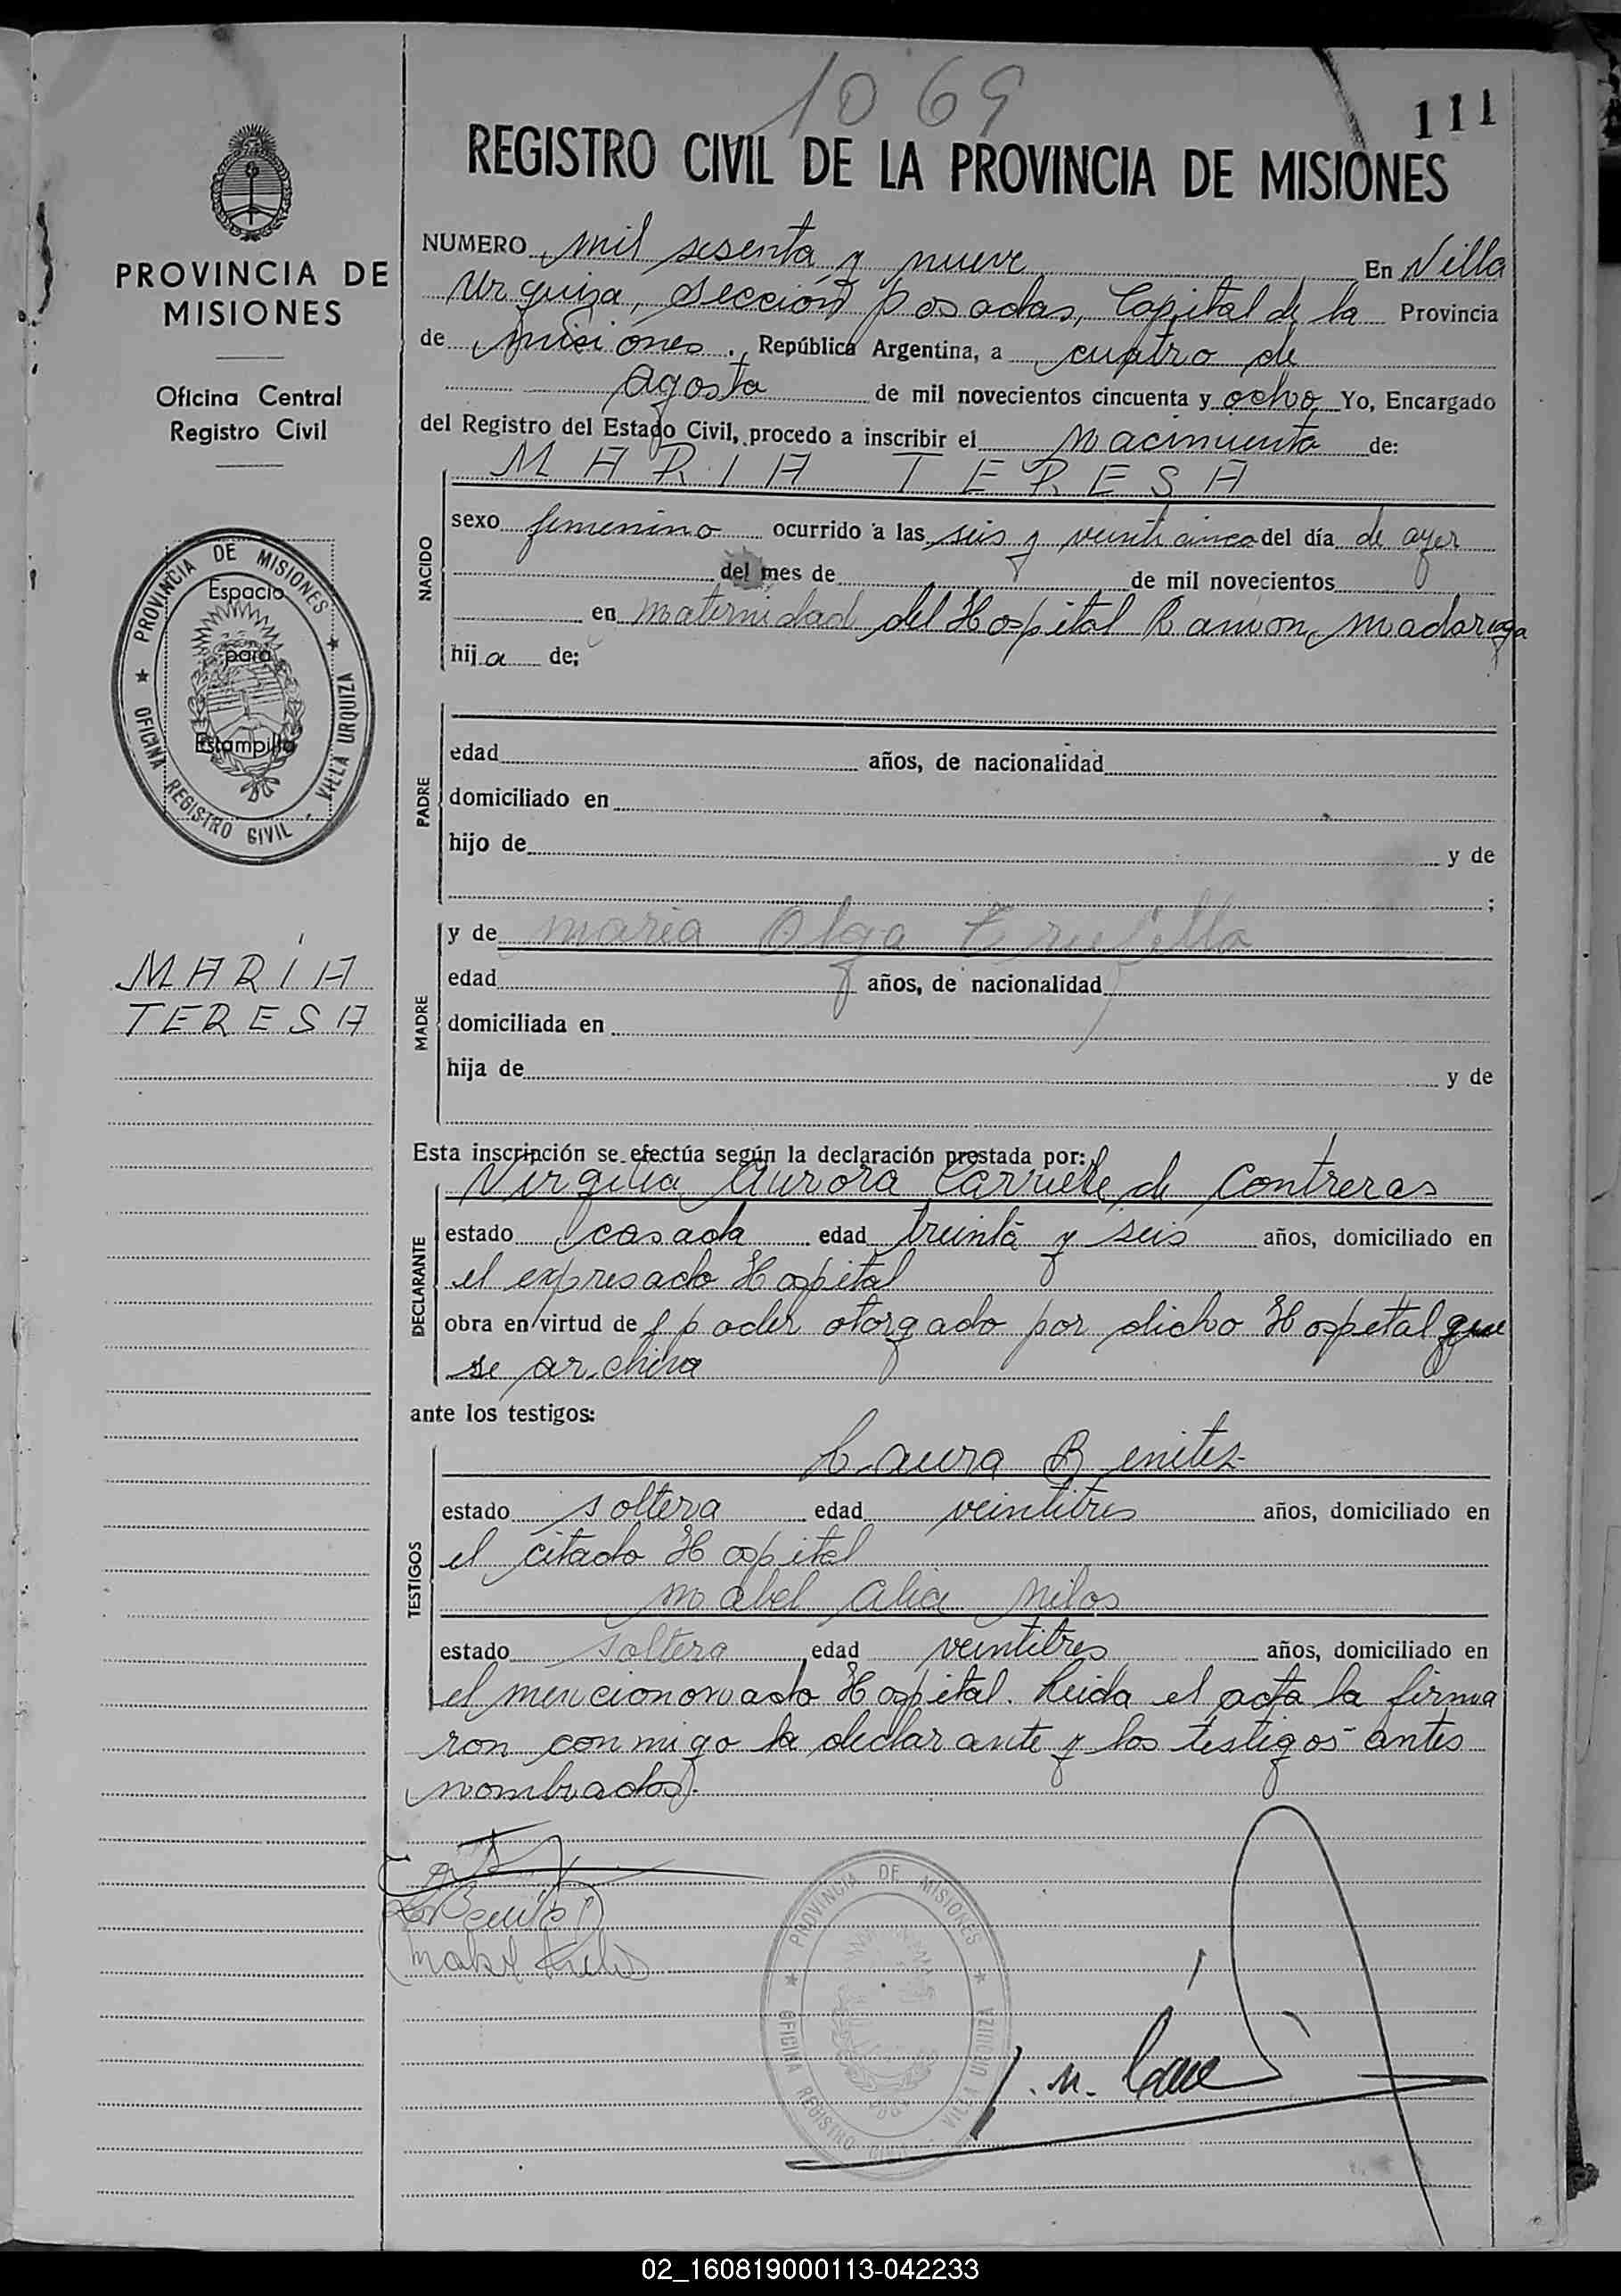 1069
111
REGISTRO CIVIL DE LA PROVINCIA DE MISIONES
PROVINCIA DE
MISIONES
Oficina Central
Registro Civil
PROVINCIA DE MISIONES ★ VILLA URQUIZA · OFICINA REGISTRO CIVIL ★
Espacio
para
Estampilla
MARÍA
TERESA
NUMERO mil sesenta y nueve En Villa
Urquiza, sección posadas, Capital de la Provincia
de Misiones . República Argentina, a cuatro de
Agosto de mil novecientos cincuenta y ocho Yo, Encargado
del Registro del Estado Civil, procedo a inscribir el Nacimiento de:
MARIA TERESA
NACIDO
sexo femenino ocurrido a las seis y veinticinco del día de ayer
del mes de de mil novecientos
en Maternidad del Hospital Ramon Madariaga
hija de:
PADRE
edad años, de nacionalidad
domiciliado en
hijo de y de
;
MADRE
y de Maria Olga
edad años, de nacionalidad
domiciliada en
hija de y de
Esta inscripción se efectúa según la declaración prestada por:
DECLARANTE
Virgilia Aurora de Contreras
estado casada edad treinta y seis años, domiciliado en
el expresado Hospital
obra en virtud de poder otorgado por dicho Hospital que
se archiva
ante los testigos:
TESTIGOS
Laura Benitez
estado soltera edad veintitres años, domiciliado en
el citado Hospital
Mabel Alicia
estado soltera edad veintitres años, domiciliado en
el mencionado Hospital. Leida el acta la firma
ron conmigo la declarante y los testigos antes
nombrados.
PROVINCIA DE MISIONES ★ VILLA URQUIZA OFICINA REGISTRO CIVIL ★
02_160819000113-042233